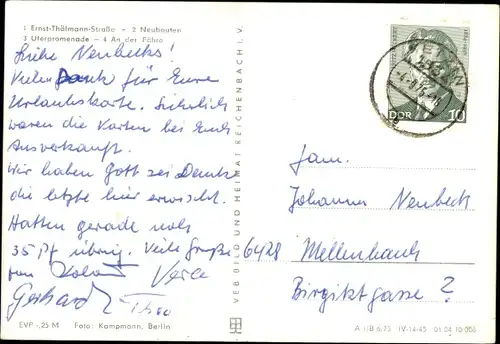 1 Ernst-Thälmann-Straße – 2 Neubauten
3 Uferpromenade – 4 An der Fähre
Liebe Neubecks!
Vielen Dank für Eure
Urlaubskarte. Sicherlich
waren die Karten bei Euch
ausverkauft.
Wir haben Gott sei Danke
die letzte hier erwischt.
Hatten gerade noch
35 Pf übrig. Viele Grüße
von Roland Vera
Gerhard Theo
EVP -,25 M Foto: Kampmann, Berlin
VEB BILD UND HEIMAT REICHENBACH I. V.
KETZIN
DDR 10
Fam.
Johannes Neubeck
6428 Mellenbach
Birgiktgasse ?
A 1/B 6/75 IV-14-45 01 04 10 006